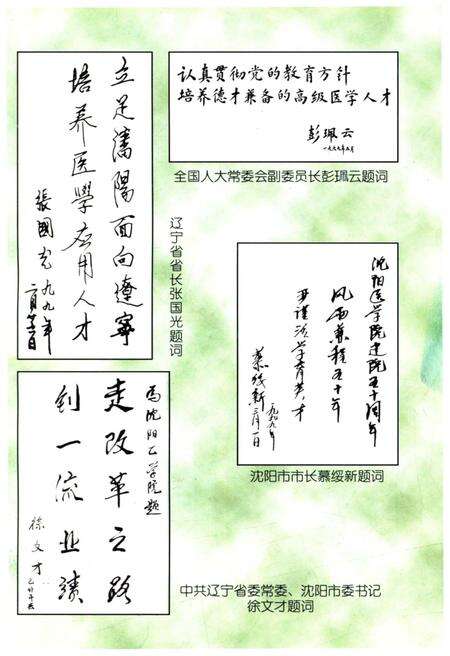 立足瀋陽面向遼寧
培养医學应用人才
張國光 一九九九年
二月廿六日
辽宁省省长张国光题词
认真贯彻党的教育方针
培养德才兼备的高级医学人才
彭珮云
一九九九年二月
全国人大常委会副委员长彭珮云题词
沈阳医学院建院五十周年
风雨兼程五十年
严谨治学育英才
慕绥新
一九九九年三月一日
沈阳市市长慕绥新题词
为沈阳医学院题
走改革之路
创一流业绩
徐文才
中共辽宁省委常委、沈阳市委书记
徐文才题词